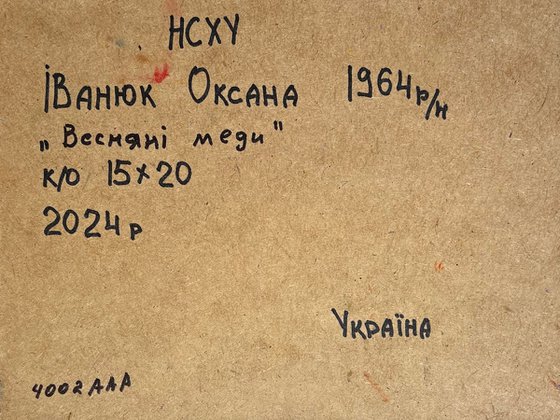 НСХУ
Іванюк Оксана 1964 р/н
„Весняні меди"
к/о 15х20
2024 р
Україна
4002 ААА